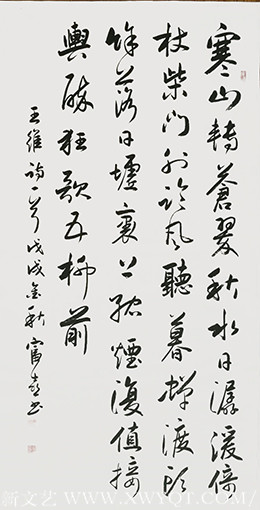 寒山轉蒼翠秋水日潺湲倚
杖柴門外臨風聽暮蟬渡頭
餘落日墟裏上孤煙復值接
輿醉狂歌五柳前
王維詩一首戊戌金秋富
新文艺 WWW.XWYQT.COM